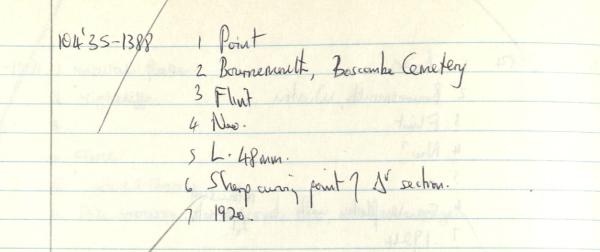 104'35-1388 1 Point
2 Bournemouth, Boscombe Cemetery
3 Flint
4 Neo.
5 L. 48mm.
6 Sharp curving point of Δr section.
7 1920.